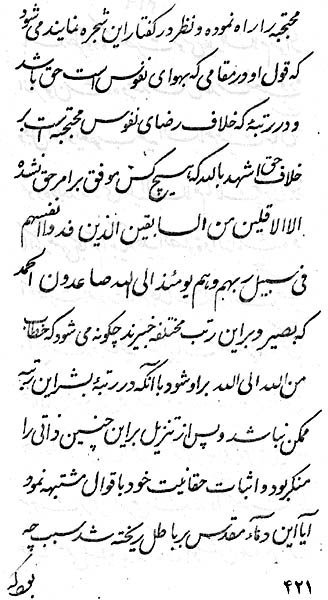 محتجبه را راه نموده و نظر در گفتار این شجره نمایند می شود
که قول او در مقامی که بهوای نفوس است حق باشد
و در رتبهٔ که خلاف رضای نفوس محتجبه است بر
خلاف حق اشهد بالله که هیچ کس موفق بر امر حق نشده
الا الاقلین من السابقین الذین فدوا انفسهم
فی سبیل ربهم و هم یومئذ الی الله صاعدون احمد
که بصیر و بر این رتب مختلفه خبیرند چگونه می شود که خطاب
من الله الی الله بر او شود با آنکه در رتبهٔ بشر این رتبه
ممکن نباشد و پس از تنزیل بر این چنین ذاتی را
منکر بود و اثبات حقانیت خود با قوال مشتبه نمود
آیا این دماء مقدس بر باطل ریخته شد سبب چه
بود که
۴۲۱